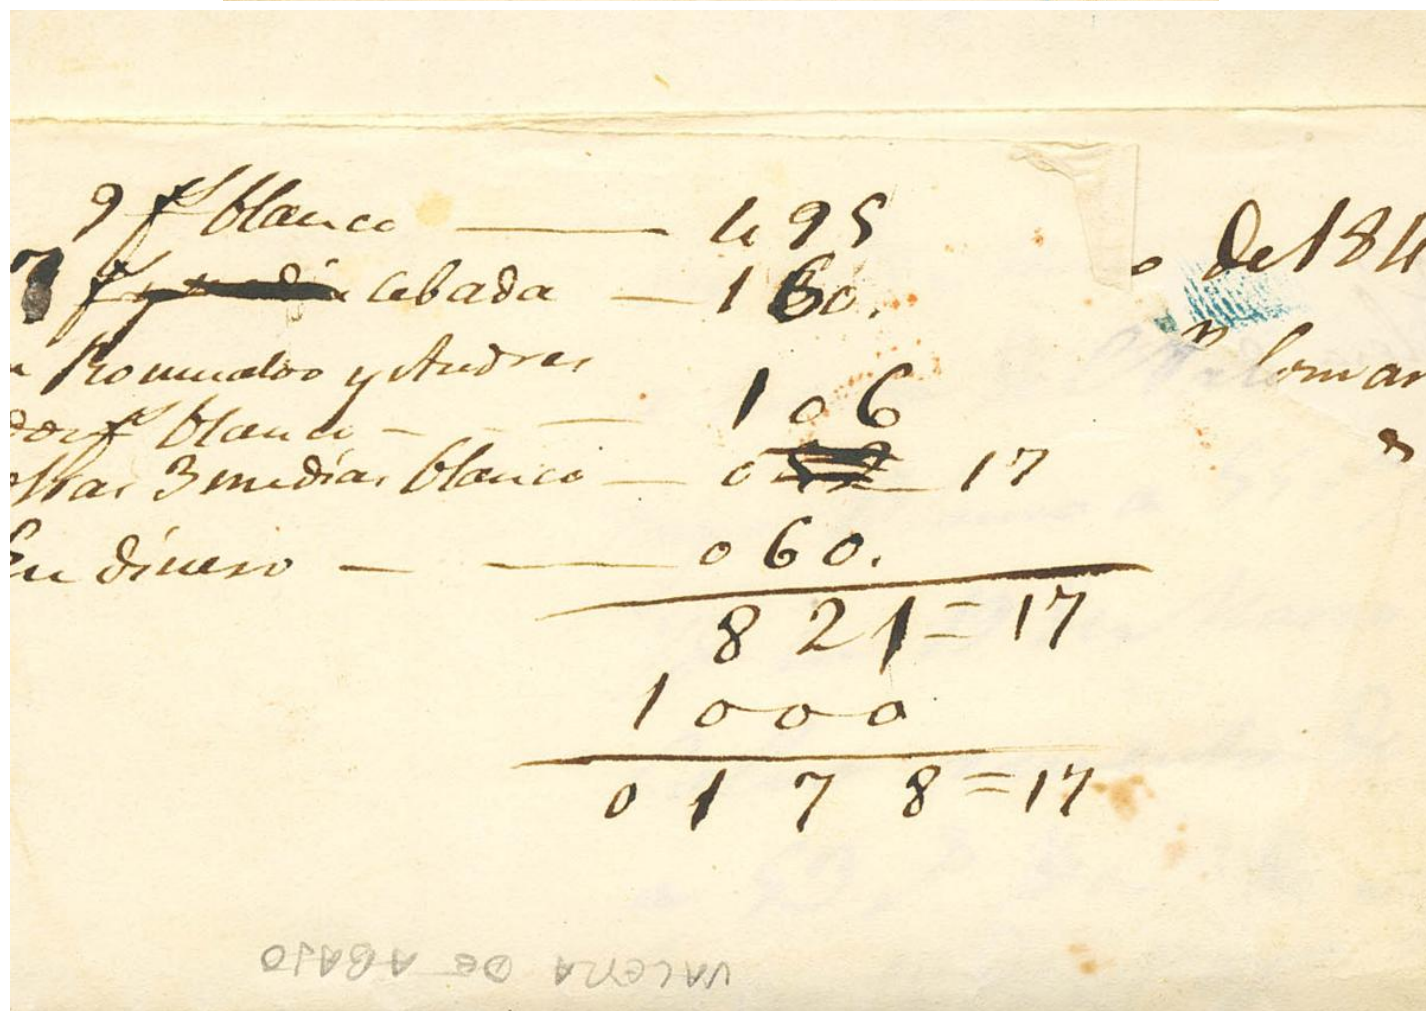 9 f blanco — 495
7 f cebada — 160.
Romualdo y Andres
dos f blanco - - — 106
otras 3 medias blanco — 0 17
En dinero — — 060.
821=17
1000
0178=17
de 184
VALERA DE ABAJO